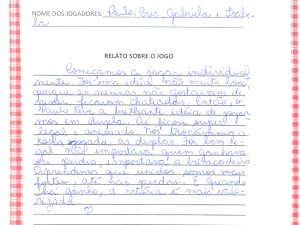 NOME DOS JOGADORES: Paulo, Cris, Gabriela e Isabe-
la.
RELATO SOBRE O JOGO
Começamos a jogar individual
mente. Foi uma idéia não muito boa,
porque as meninas não gostavam de
perder, ficavam chateadas. Então, o
Paulo teve a brilhante idéia de jogar
mos em dupla. Aí, ficou super
legal e animado. Nós trocávamos a
rodada, as duplas. Foi bem le
gal. Não importava quem ganhava
ou perdia, importava a brincadeira.
Aprendemos que unidos somos mais
fortes, até nas perdas. E quando
há ganho, a vitória é mais valo-
rizada.